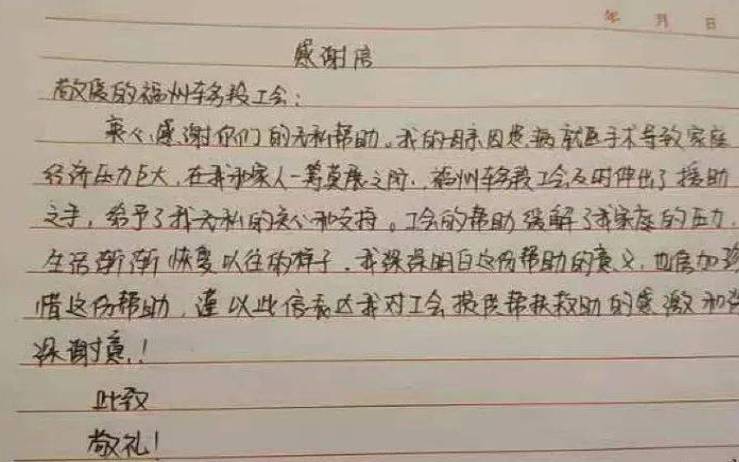 年 月 日
感谢信
敬爱的福州车务段工会:
衷心感谢你们的无私帮助。我的母亲因患病就医手术导致家庭
经济压力巨大,在我和家人一筹莫展之际,福州车务段工会及时伸出了援助
之手,给予了我无私的关心和支持。工会的帮助缓解了我家庭的压力,
生活渐渐恢复以往的样子。我深深明白这份帮助的意义,也倍加珍
惜这份帮助,谨以此信表达我对工会提供帮扶救助的感激和深
深谢意!
此致
敬礼!